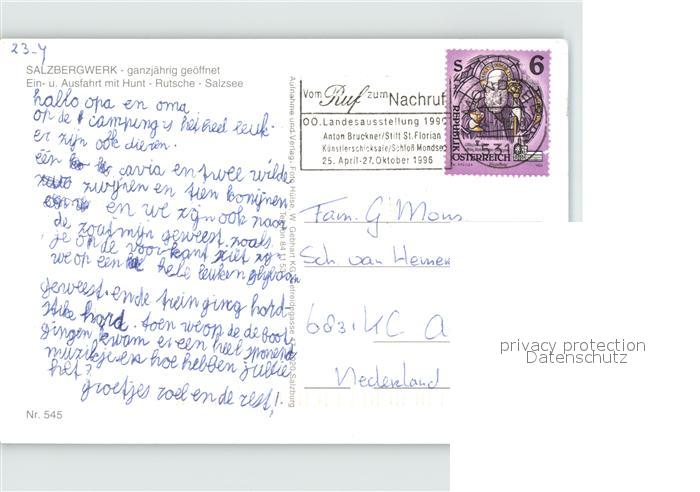 23-4
SALZBERGWERK - ganzjährig geöffnet
Ein- u. Ausfahrt mit Hunt - Rutsche - Salzsee
hallo opa en oma
op de camping is het heel leuk.
er zijn ook dieren.
één cavia en twee wilde
zwijnen en tien konijnen
en we zijn ook naar
de zoutmijn geweest. zoals
je op de voorkant ziet zijn
we op één hele leuke glijbaan
geweest. en de trein ging hard
stike hard. toen we op de boot
gingen kwam er een heel sponend
muziekje en hoe hebben jullie
het?
groetjes roel en de rest!
Nr. 545
Aufnahme und Verlag: Fritz Hulse, W. Gebhart KG, Getreidegasse
Salzburg
Vom Ruf zum Nachruf
OÖ. Landesausstellung 1996
Anton Bruckner/Stift St. Florian
Künstlerschicksale/Schloß Mondsee
25. April - 27. Oktober 1996
S 6
REPUBLIK
ÖSTERREICH
5310
Fam. G Mons
Sch. van
KC A
Nederland
privacy protection
Datenschutz